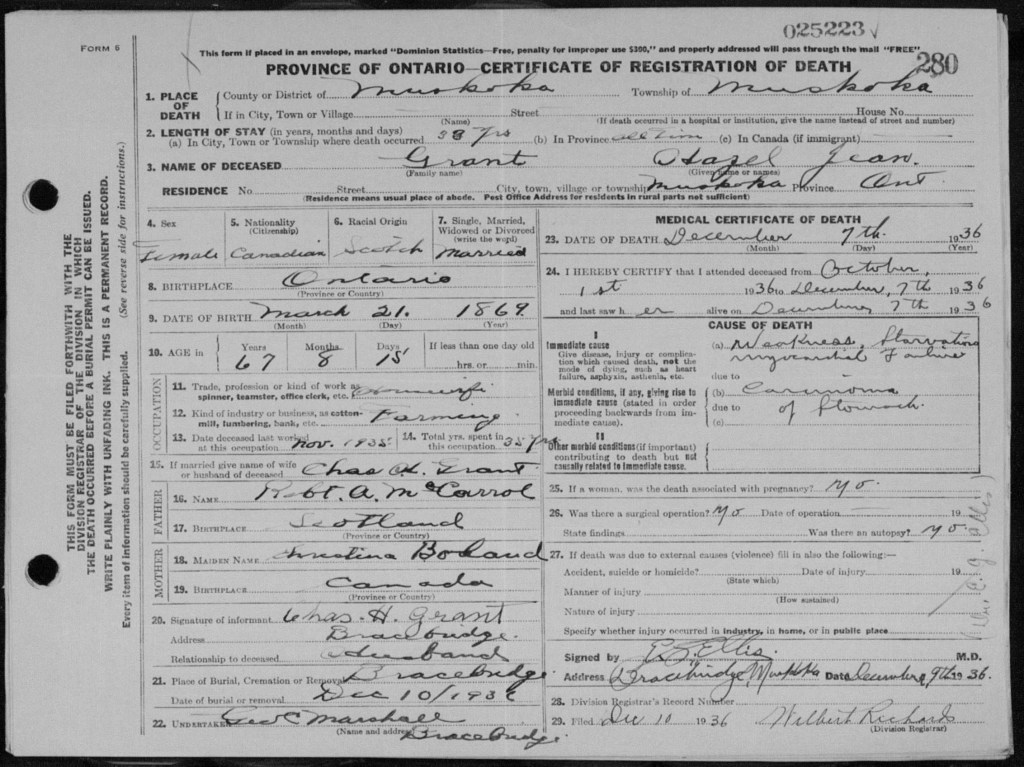 025223
FORM 6
This form if placed in an envelope, marked "Dominion Statistics—Free, penalty for improper use $300," and property addressed will pass through the mail "FREE"
280
PROVINCE OF ONTARIO—CERTIFICATE OF REGISTRATION OF DEATH
1. PLACE OF DEATH { County or District of Muskoka Township of Muskoka
If in City, Town or Village Street House No.
(Name) (If death occurred in a hospital or institution, give the name instead of street and number)
2. LENGTH OF STAY (in years, months and days)
(a) In City, Town or Township where death occurred 38 yrs (b) In Province all time (c) In Canada (if immigrant)
3. NAME OF DECEASED Grant Hazel Jean.
(Family name) (Given name or names)
RESIDENCE No Street City, town, village or township Muskoka Province Ont.
(Residence means usual place of abode. Post Office Address for residents in rural parts not sufficient)
THIS FORM MUST BE FILED FORTHWITH WITH THE
DIVISION REGISTRAR OF THE DIVISION IN WHICH
THE DEATH OCCURRED BEFORE A BURIAL PERMIT CAN BE ISSUED.
WRITE PLAINLY WITH UNFADING INK. THIS IS A PERMANENT RECORD.
Every item of information should be carefully supplied. (See reverse side for instructions.)
4. Sex 5. Nationality (Citizenship) 6. Racial Origin 7. Single, Married, Widowed or Divorced (write the word)
Female Canadian Scotch Married
8. BIRTHPLACE Ontario
(Province or Country)
9. DATE OF BIRTH March 21. 1869
(Month) (Day) (Year)
10. AGE in Years Months Days If less than one day old
67 8 15 hrs. or min.
OCCUPATION
11. Trade, profession or kind of work as spinner, teamster, office clerk, etc. Housewife
12. Kind of industry or business, as cotton-mill, lumbering, bank, etc. Farming
13. Date deceased last worked at this occupation Nov. 1935 14. Total yrs. spent in this occupation 38 yrs
15. If married give name of wife or husband of deceased Chas H. Grant
FATHER
16. NAME Robt. A. McCarrol
17. BIRTHPLACE Scotland
(Province or Country)
MOTHER
18. MAIDEN NAME Christina Boland
19. BIRTHPLACE Canada
(Province or Country)
20. Signature of informant Chas. H. Grant
Address Bracebridge.
Relationship to deceased Husband
21. Place of Burial, Cremation or Removal Bracebridge
Date of burial or removal Dec 10/1936
22. UNDERTAKER Geo C Marshall
(Name and address) Bracebridge
MEDICAL CERTIFICATE OF DEATH
23. DATE OF DEATH December 7th. 1936
(Month) (Day) (Year)
24. I HEREBY CERTIFY that I attended deceased from October,
1st 1936 to December, 7th 1936
and last saw her alive on December 7th 1936
CAUSE OF DEATH
I
Immediate cause
Give disease, injury or complication which caused death, not the mode of dying, such as heart failure, asphyxia, asthenia, etc.
(a) Weakness, Starvation
Myocardial Failure
due to
Morbid conditions, if any, giving rise to immediate cause (stated in order proceeding backwards from immediate cause)
(b) Carcinoma
due to of Stomach.
(c)
II
Other morbid conditions (if important) contributing to death but not causally related to immediate cause.
25. If a woman, was the death associated with pregnancy? No.
26. Was there a surgical operation? No Date of operation 19
State findings Was there an autopsy? No.
27. If death was due to external causes (violence) fill in also the following:—
Accident, suicide or homicide? Date of injury 19
(State which)
Manner of injury
(How sustained)
Nature of injury
Specify whether injury occurred in industry, in home, or in public place
Signed by E. G. Ellis. M.D.
Address Bracebridge, Muskoka Date December 9th 1936.
28. Division Registrar's Record Number
29. Filed Dec 10 1936 Wilbert Richards
(Division Registrar)